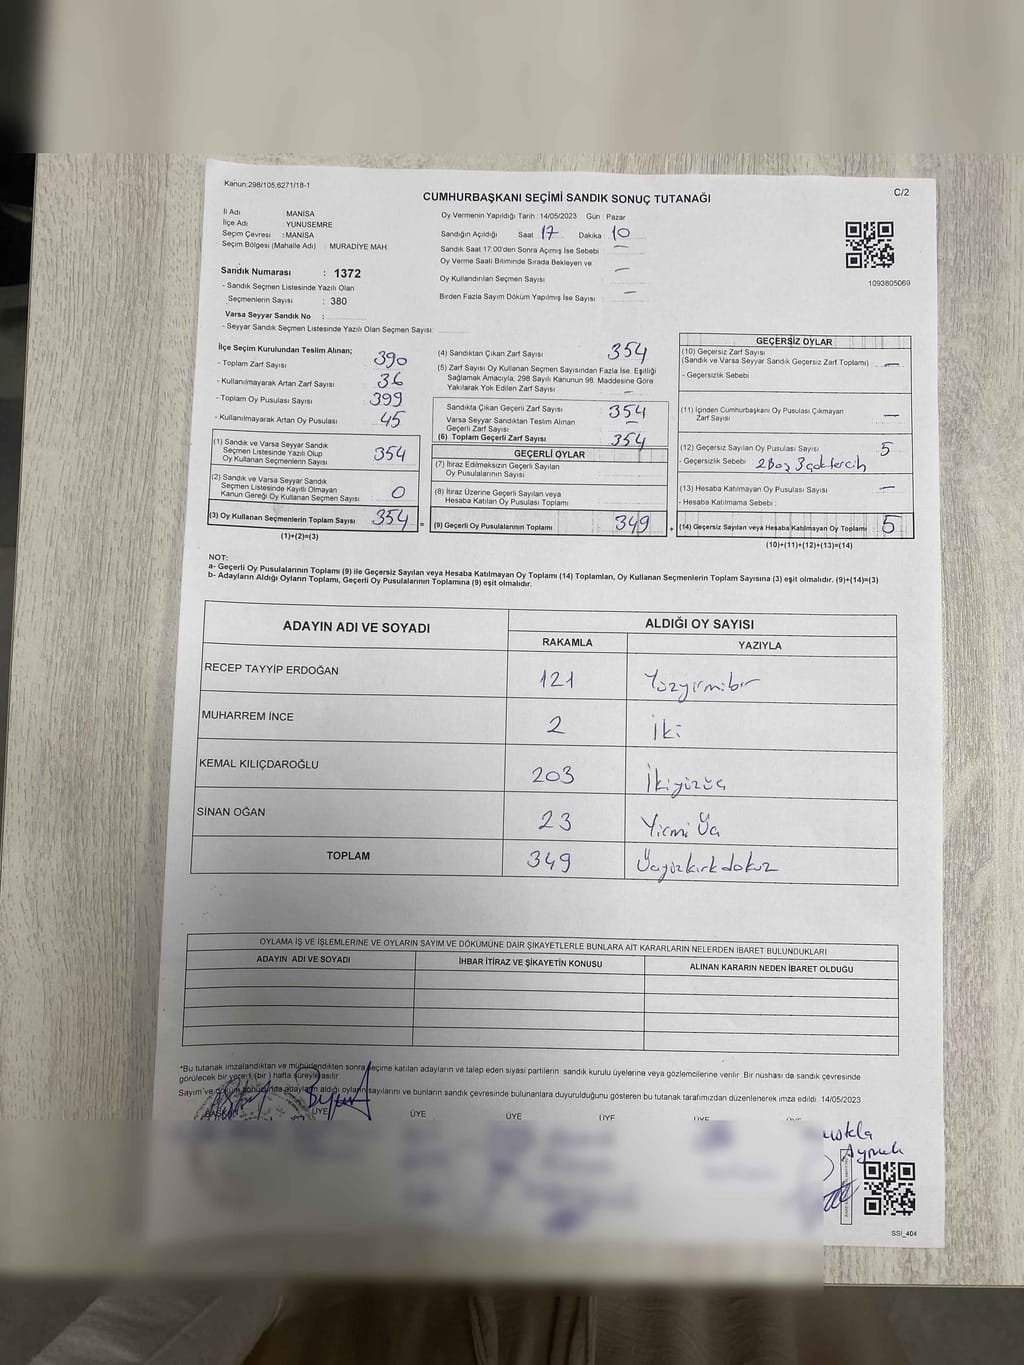 Kanun:298/105;6271/18-1
C/2
CUMHURBAŞKANI SEÇİMİ SANDIK SONUÇ TUTANAĞI
İl Adı : MANİSA
İlçe Adı : YUNUSEMRE
Seçim Çevresi : MANİSA
Seçim Bölgesi (Mahalle Adı) : MURADİYE MAH.
Sandık Numarası : 1372
- Sandık Seçmen Listesinde Yazılı Olan
Seçmenlerin Sayısı : 380
Varsa Seyyar Sandık No :
- Seyyar Sandık Seçmen Listesinde Yazılı Olan Seçmen Sayısı:
Oy Vermenin Yapıldığı Tarih :14/05/2023 Gün : Pazar
Sandığın Açıldığı Saat 17 Dakika 10
Sandık Saat 17:00'den Sonra Açımış İse Sebebi —
Oy Verme Saati Bitiminde Sırada Bekleyen ve
Oy Kullandırılan Seçmen Sayısı —
Birden Fazla Sayım Döküm Yapılmış İse Sayısı —
1093805069
İlçe Seçim Kurulundan Teslim Alınan;
- Toplam Zarf Sayısı 390
- Kullanılmayarak Artan Zarf Sayısı 36
- Toplam Oy Pusulası Sayısı 399
- Kullanılmayarak Artan Oy Pusulası 45
(1) Sandık ve Varsa Seyyar Sandık
Seçmen Listesinde Yazılı Olup
Oy Kullanan Seçmenlerin Sayısı 354
(2) Sandık ve Varsa Seyyar Sandık
Seçmen Listesinde Kayıtlı Olmayan
Kanun Gereği Oy Kullanan Seçmen Sayısı 0
(3) Oy Kullanan Seçmenlerin Toplam Sayısı 354 =
(1)+(2)=(3)
(4) Sandıktan Çıkan Zarf Sayısı 354
(5) Zarf Sayısı Oy Kullanan Seçmen Sayısından Fazla İse, Eşitliği
Sağlamak Amacıyla; 298 Sayılı Kanunun 98. Maddesine Göre
Yakılarak Yok Edilen Zarf Sayısı —
Sandıkta Çıkan Geçerli Zarf Sayısı 354
Varsa Seyyar Sandıktan Teslim Alınan
Geçerli Zarf Sayısı —
(6) Toplam Geçerli Zarf Sayısı 354
GEÇERLİ OYLAR
(7) İtiraz Edilmeksizin Geçerli Sayılan
Oy Pusulalarının Sayısı
(8) İtiraz Üzerine Geçerli Sayılan veya
Hesaba Katılan Oy Pusulası Toplamı
(9) Geçerli Oy Pusulalarının Toplamı 349 +
GEÇERSİZ OYLAR
(10) Geçersiz Zarf Sayısı
(Sandık ve Varsa Seyyar Sandık Geçersiz Zarf Toplamı) —
- Geçersizlik Sebebi
(11) İçinden Cumhurbaşkanı Oy Pusulası Çıkmayan
Zarf Sayısı —
(12) Geçersiz Sayılan Oy Pusulası Sayısı 5
- Geçersizlik Sebebi 2 Boş 3 çok tercih
(13) Hesaba Katılmayan Oy Pusulası Sayısı —
- Hesaba Katılmama Sebebi :
(14) Geçersiz Sayılan veya Hesaba Katılmayan Oy Toplamı 5
(10)+(11)+(12)+(13)=(14)
NOT:
a- Geçerli Oy Pusulalarının Toplamı (9) ile Geçersiz Sayılan veya Hesaba Katılmayan Oy Toplamı (14) Toplamları, Oy Kullanan Seçmenlerin Toplam Sayısına (3) eşit olmalıdır. (9)+(14)=(3)
b- Adayların Aldığı Oyların Toplamı, Geçerli Oy Pusulalarının Toplamına (9) eşit olmalıdır.
ADAYIN ADI VE SOYADI ALDIĞI OY SAYISI
RAKAMLA YAZIYLA
RECEP TAYYİP ERDOĞAN 121 Yüzyirmibir
MUHARREM İNCE 2 İki
KEMAL KILIÇDAROĞLU 203 İkiyüzüç
SİNAN OĞAN 23 Yirmi Üç
TOPLAM 349 Üçyüzkırkdokuz
OYLAMA İŞ VE İŞLEMLERİNE VE OYLARIN SAYIM VE DÖKÜMÜNE DAİR ŞİKAYETLERLE BUNLARA AİT KARARLARIN NELERDEN İBARET BULUNDUKLARI
ADAYIN ADI VE SOYADI İHBAR İTİRAZ VE ŞİKAYETİN KONUSU ALINAN KARARIN NEDEN İBARET OLDUĞU
*Bu tutanak imzalandıktan ve mühürlendikten sonra seçime katılan adayların ve talep eden siyasi partilerin sandık kurulu üyelerine veya gözlemcilerine verilir. Bir nüshası da sandık çevresinde
görülecek bir yere 1 (bir ) hafta süreyle asılır
Sayım ve döküm sonucunda adayların aldığı oyların sayılarını ve bunların sandık çevresinde bulunanlara duyurulduğunu gösteren bu tutanak tarafımızdan düzenlenerek imza edildi. 14/05/2023
BAŞKAN ÜYE ÜYE ÜYE ÜYE ÜYE ÜYE
SSI_404